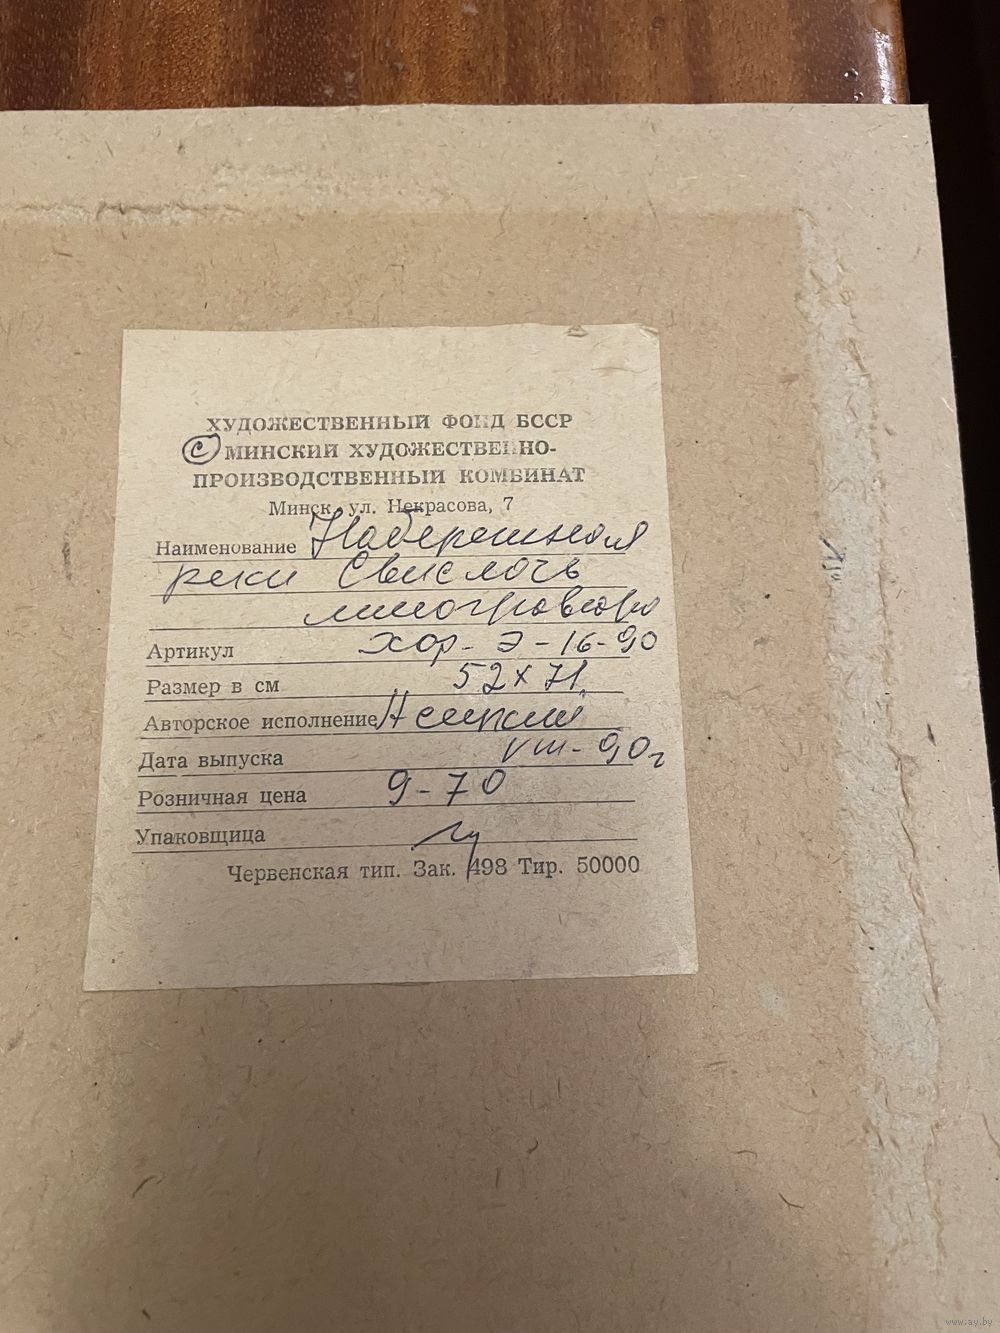 ХУДОЖЕСТВЕННЫЙ ФОНД БССР
© МИНСКИЙ ХУДОЖЕСТВЕННО-
ПРОИЗВОДСТВЕННЫЙ КОМБИНАТ
Минск, ул. Некрасова, 7
Наименование Набережная
реки Свислочь
линогравюра
Артикул хор- Э-16-90
Размер в см 52х71
Авторское исполнение
Дата выпуска VIII-90г
Розничная цена 9-70
Упаковщица
Червенская тип. Зак. 498 Тир. 50000
www.ay.by